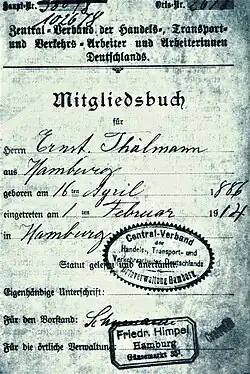 Haupt-Nr.
10268
Orts-Nr.
Zentral-Verband der Handels-, Transport-
und Verkehrs-Arbeiter und Arbeiterinnen
Deutschlands.
Mitgliedsbuch
für
Herrn Ernst Thälmann
aus Hamburg
geboren am 16 ten April 886
eingetreten am 1 ten Februar 19
in Hamburg
Statut gelesen und anerkannt
Central-Verband
der
Handels-, Transport- und
Verkehrsarbeiter Deutschlands
Ortsverwaltung Hamburg
Eigenhändige Unterschrift:
Für den Vorstand:
Für die örtliche Verwaltung:
Friedr. Himpel
Hamburg
Gänsemarkt